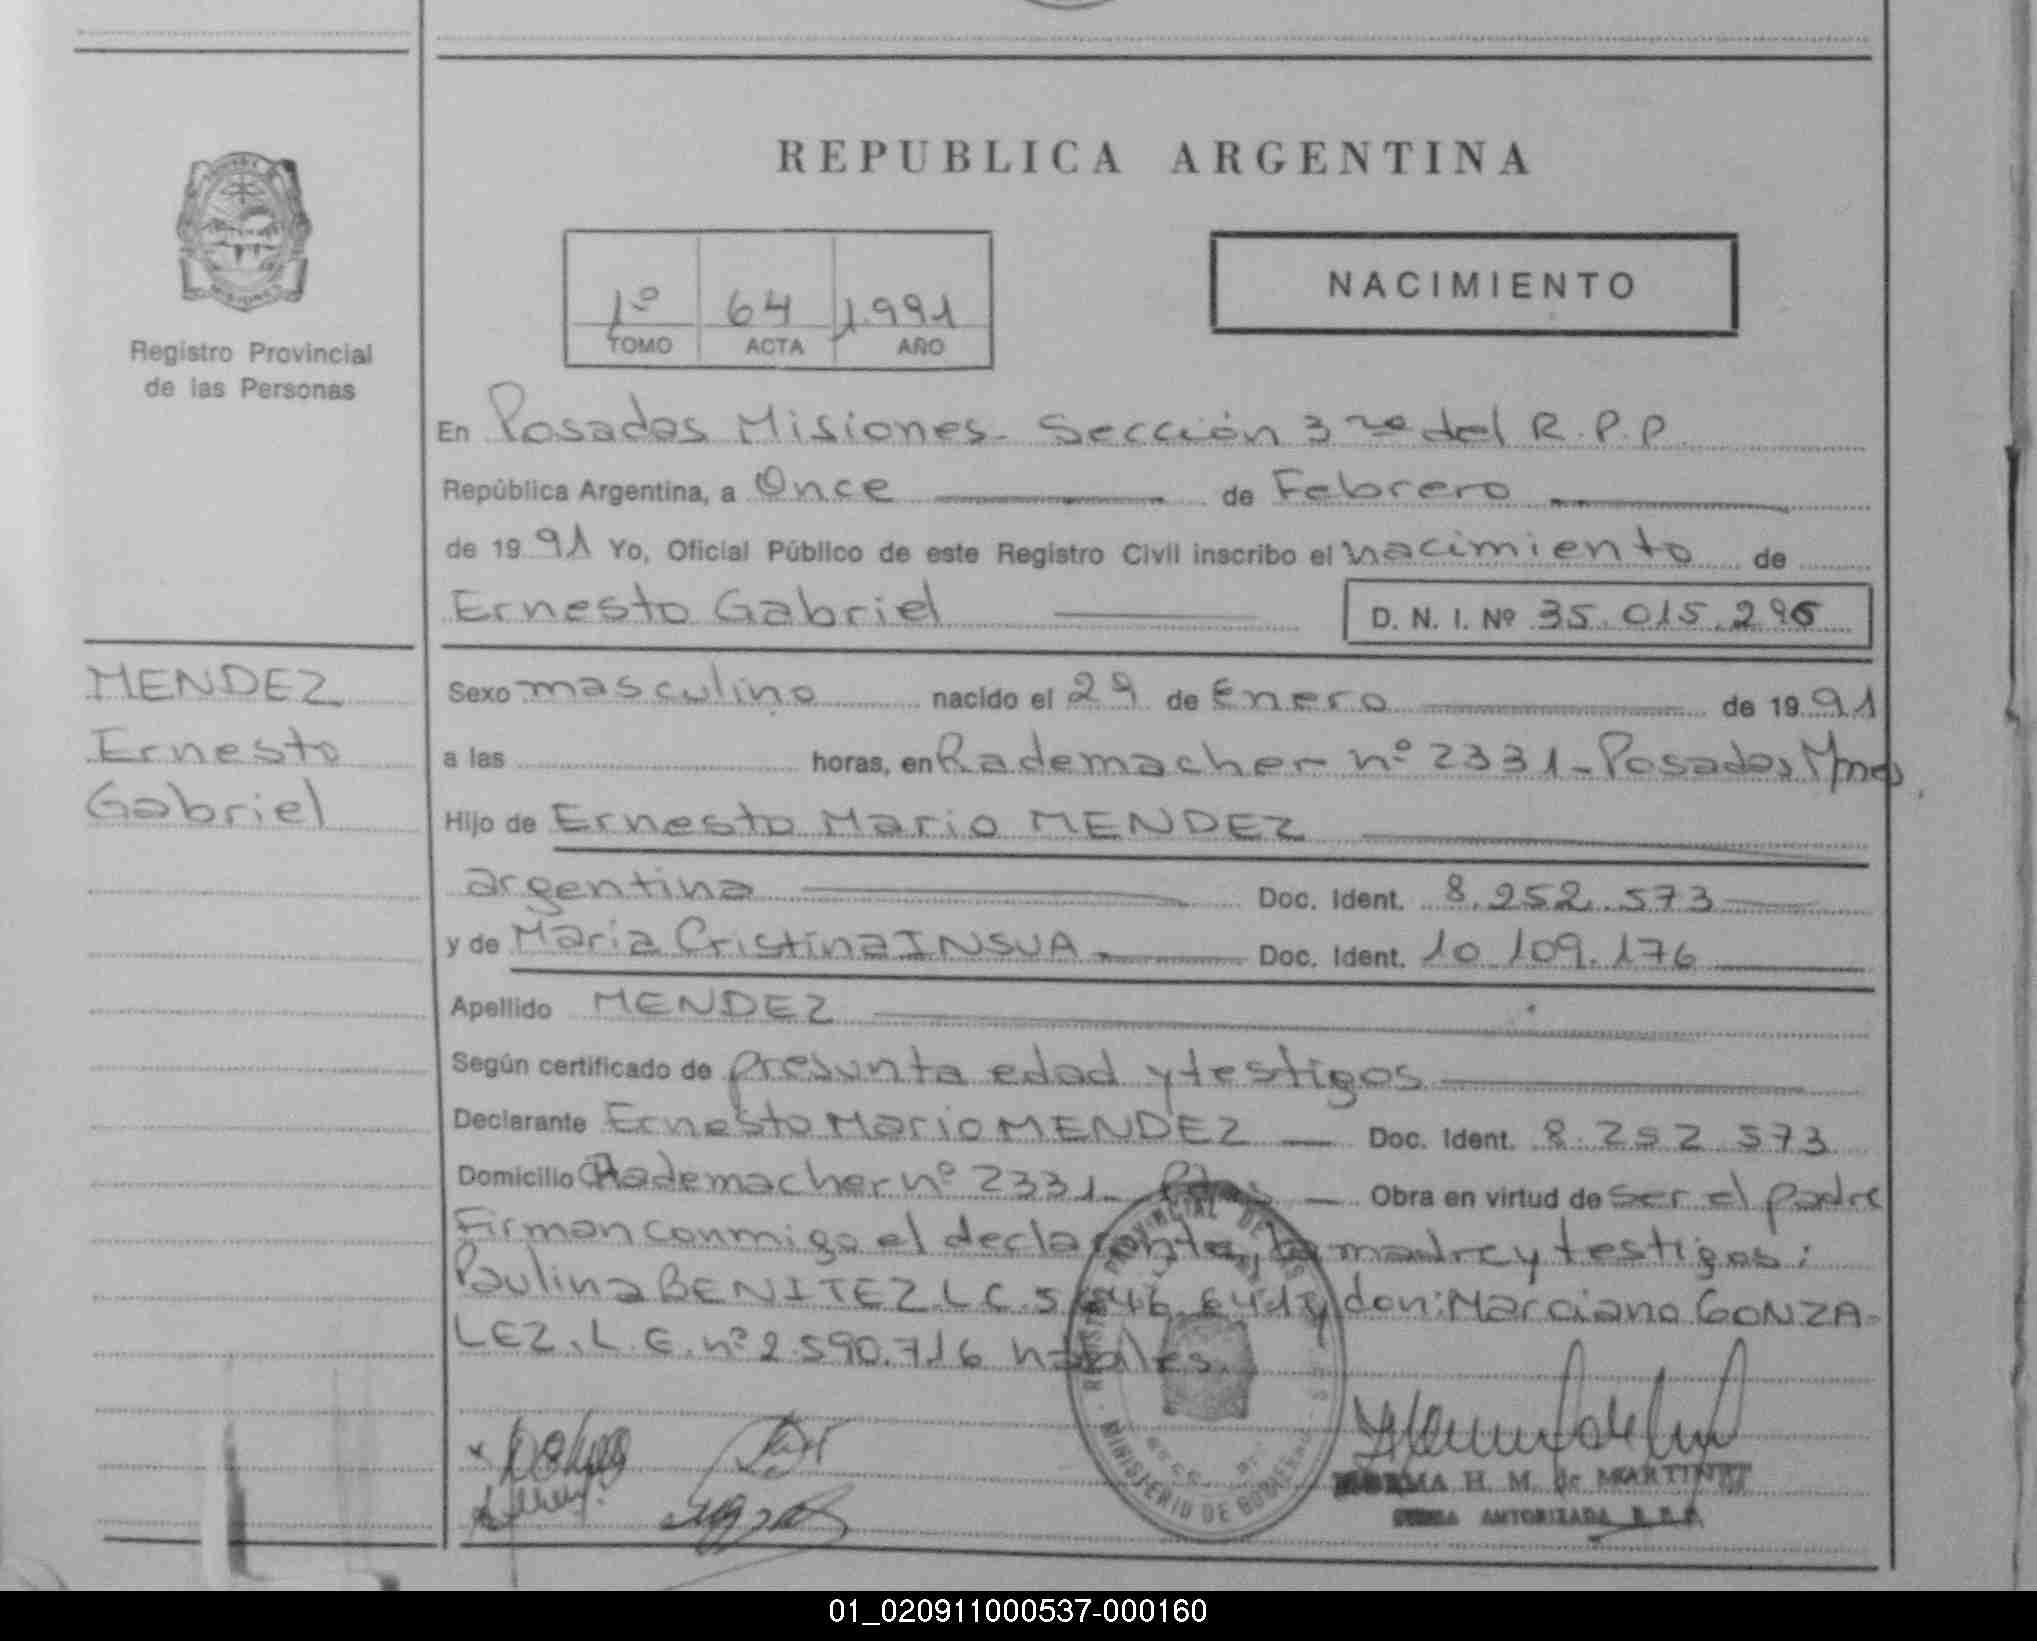 REPUBLICA ARGENTINA
MISIONES
Registro Provincial
de las Personas
1º 64 1.991
TOMO ACTA AÑO
NACIMIENTO
En Posadas Misiones - Sección 3ra del R.P.P.
República Argentina, a Once de Febrero
de 1991 Yo, Oficial Público de este Registro Civil inscribo el nacimiento de
Ernesto Gabriel D. N. I. Nº 35.015.296
MENDEZ
Ernesto
Gabriel
Sexo masculino nacido el 29 de Enero de 1991
a las horas, en Rademacher nº 2331 - Posadas Mnes.
Hijo de Ernesto Mario MENDEZ
argentina Doc. Ident. 8.252.573
y de Maria Cristina INSUA Doc. Ident. 10.109.176
Apellido MENDEZ
Según certificado de presunta edad y testigos
Declarante Ernesto Mario MENDEZ Doc. Ident. 8.252.573
Domicilio Rademacher nº 2331 - Obra en virtud de ser el padre
Firman conmigo el declarante, la madre y testigos:
Paulina BENITEZ L.C. y don: Marciano GONZA-
LEZ. L.E. nº 2.590.716 hábiles.
REGISTRO PROVINCIAL DE LAS PERSONAS
MINISTERIO DE GOBIERNO
NORMA H. M. de MARTINEZ
FIRMA AUTORIZADA R.P.P.
01_020911000537-000160